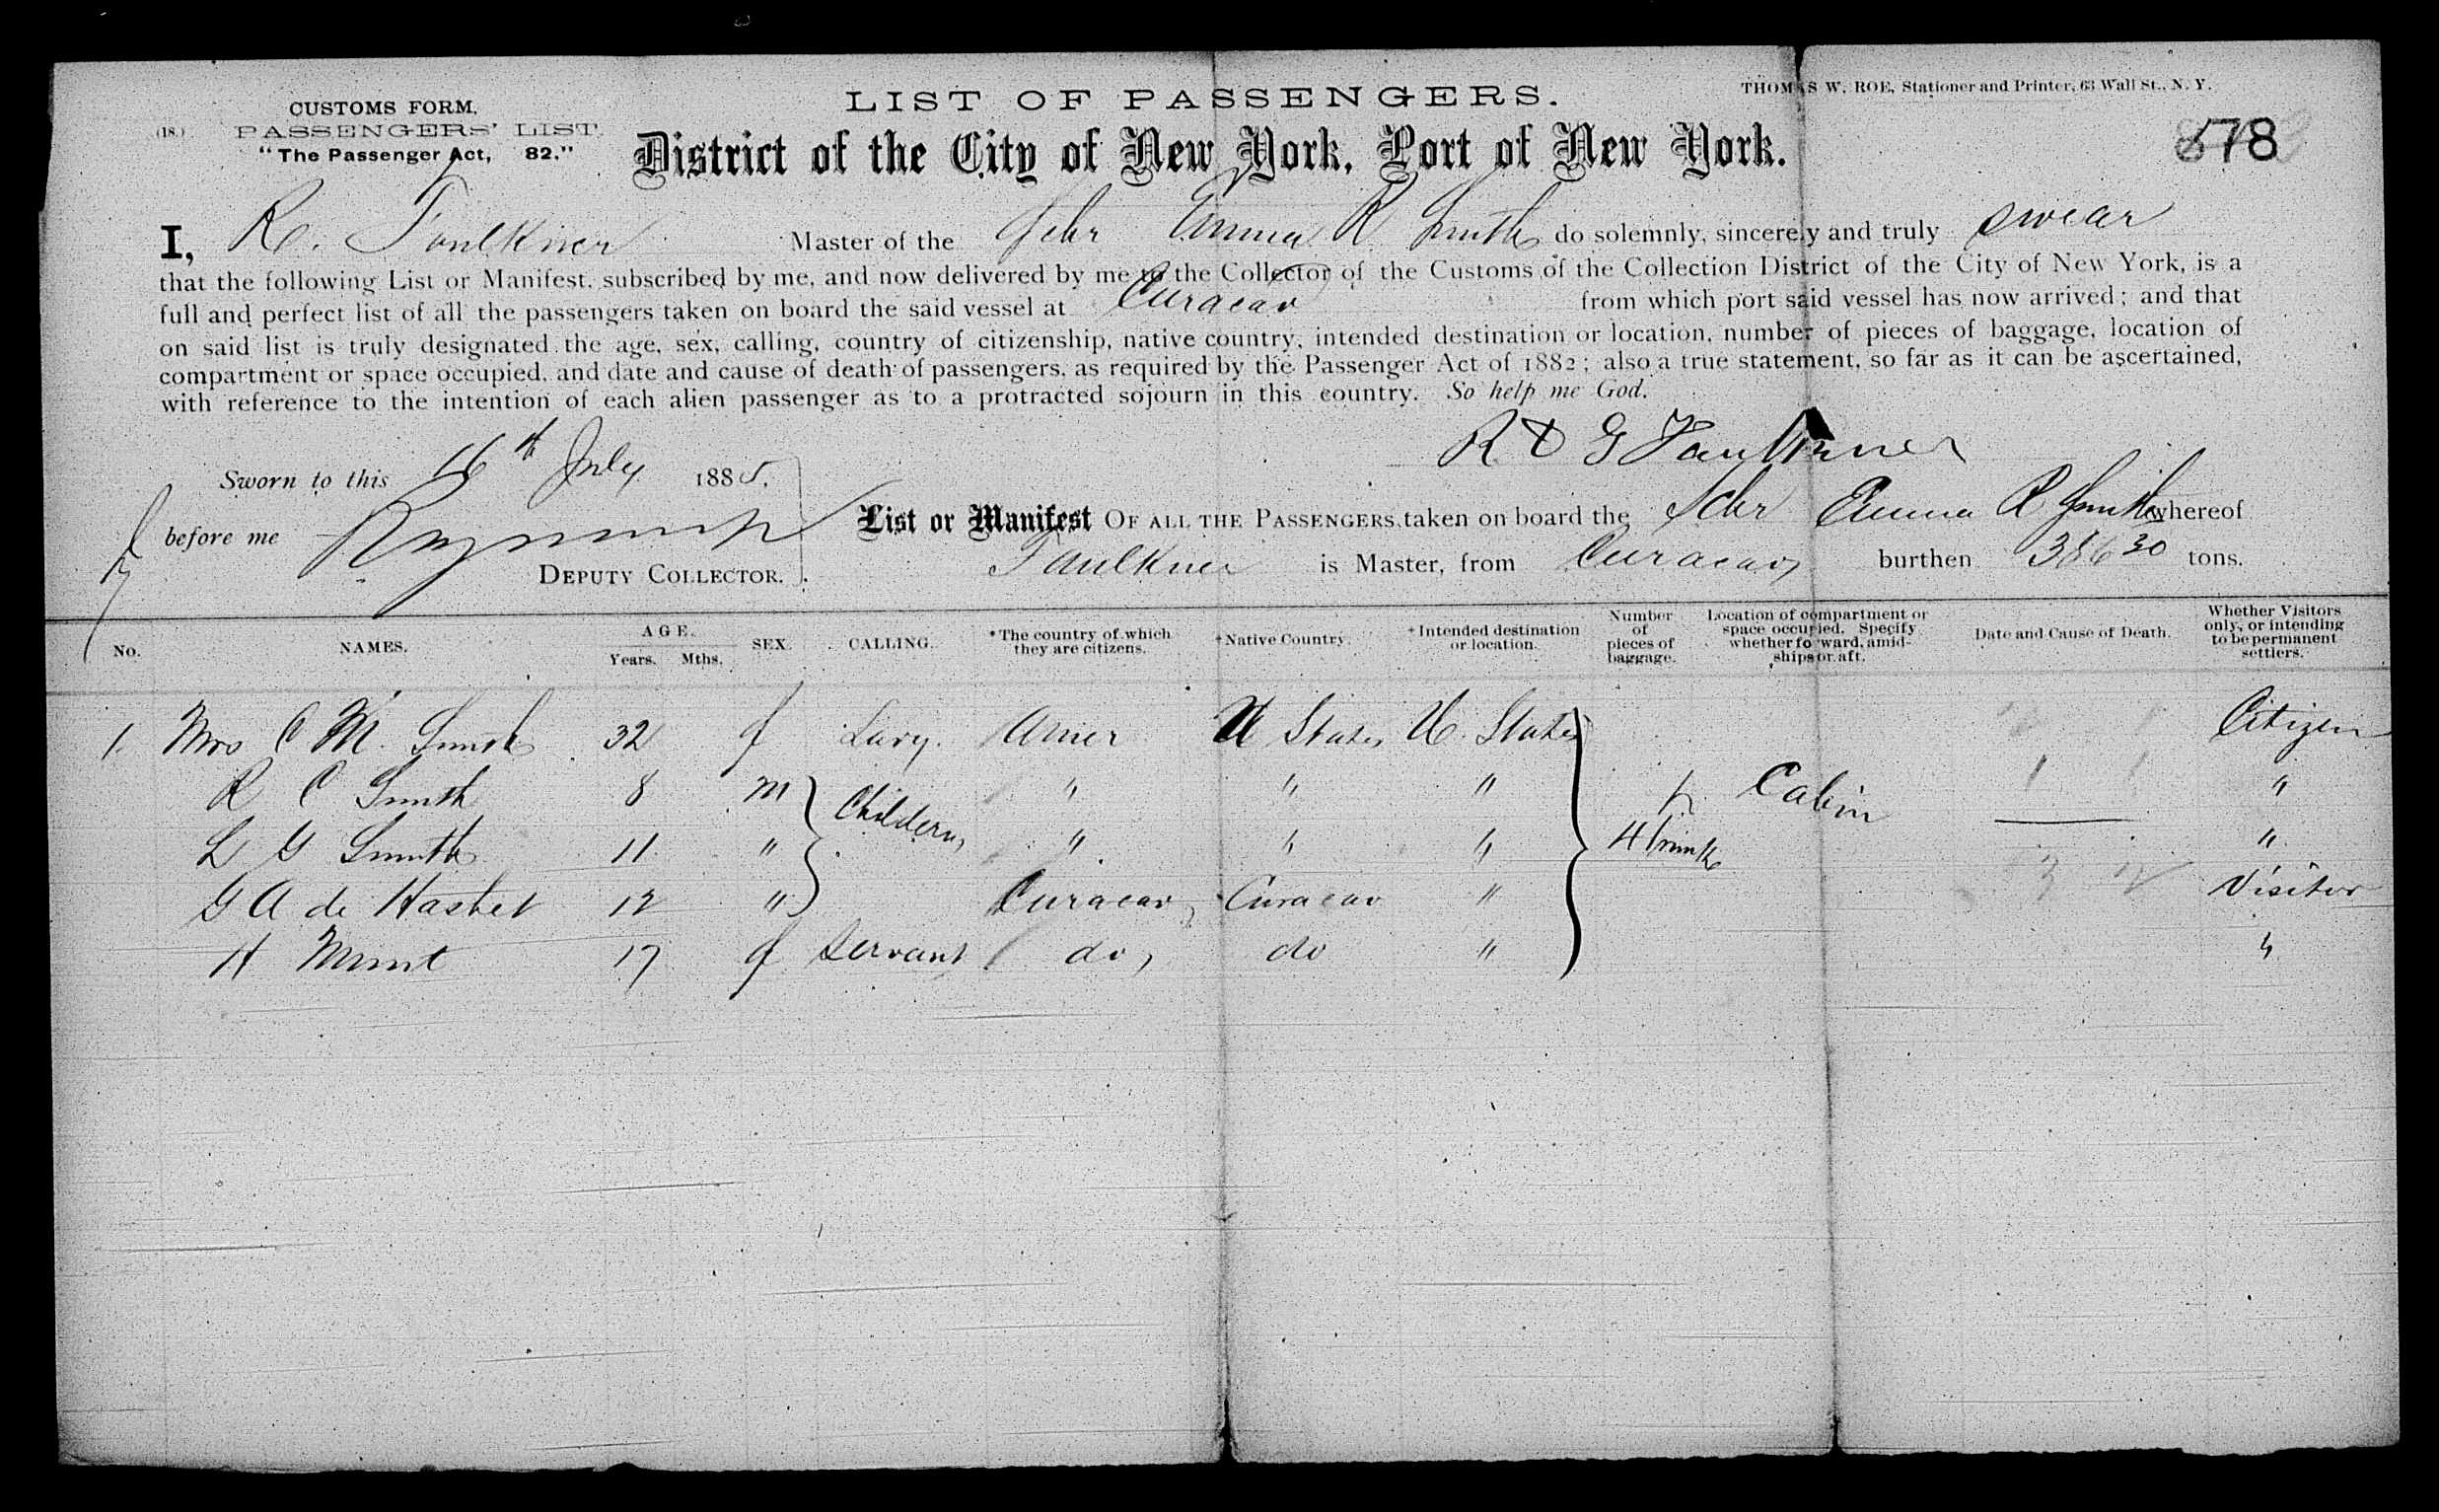 LIST OF PASSENGERS.
THOMAS W. ROE, Stationer and Printer, 63 Wall St., N. Y.
CUSTOMS FORM.
(18.) PASSENGERS' LIST.
"The Passenger Act, 82."
District of the City of New York, Port of New York.
178
I, R. Faulkner Master of the Schr Emma R Smith do solemnly, sincerely and truly swear
that the following List or Manifest, subscribed by me, and now delivered by me to the Collector of the Customs of the Collection District of the City of New York, is a
full and perfect list of all the passengers taken on board the said vessel at Curacao from which port said vessel has now arrived; and that
on said list is truly designated the age, sex, calling, country of citizenship, native country, intended destination or location, number of pieces of baggage, location of
compartment or space occupied, and date and cause of death of passengers, as required by the Passenger Act of 1882; also a true statement, so far as it can be ascertained,
with reference to the intention of each alien passenger as to a protracted sojourn in this country. So help me God.
R D G Faulkner
Sworn to this 16th July 1885.
before me
DEPUTY COLLECTOR.
List or Manifest OF ALL THE PASSENGERS taken on board the Schr Emma R Smith whereof
Faulkner is Master, from Curacao, burthen 386 30 tons.
No. NAMES. AGE. Years. Mths. SEX. CALLING. *The country of which they are citizens. †Native Country. †Intended destination or location. Number of pieces of baggage. Location of compartment or space occupied. Specify whether forward, amidships or aft. Date and Cause of Death. Whether Visitors only, or intending to be permanent settlers.
1. Mrs C M. Smith 32 f Lady. Amer U States U. States Citizen
R C Smith 8 m Childern, " " " Cabin "
L G Smith 11 " " " " 4 trunks "
G A de Hasket 12 " Curacao, Curacao " Visitor
H 17 f Servant do, do " "